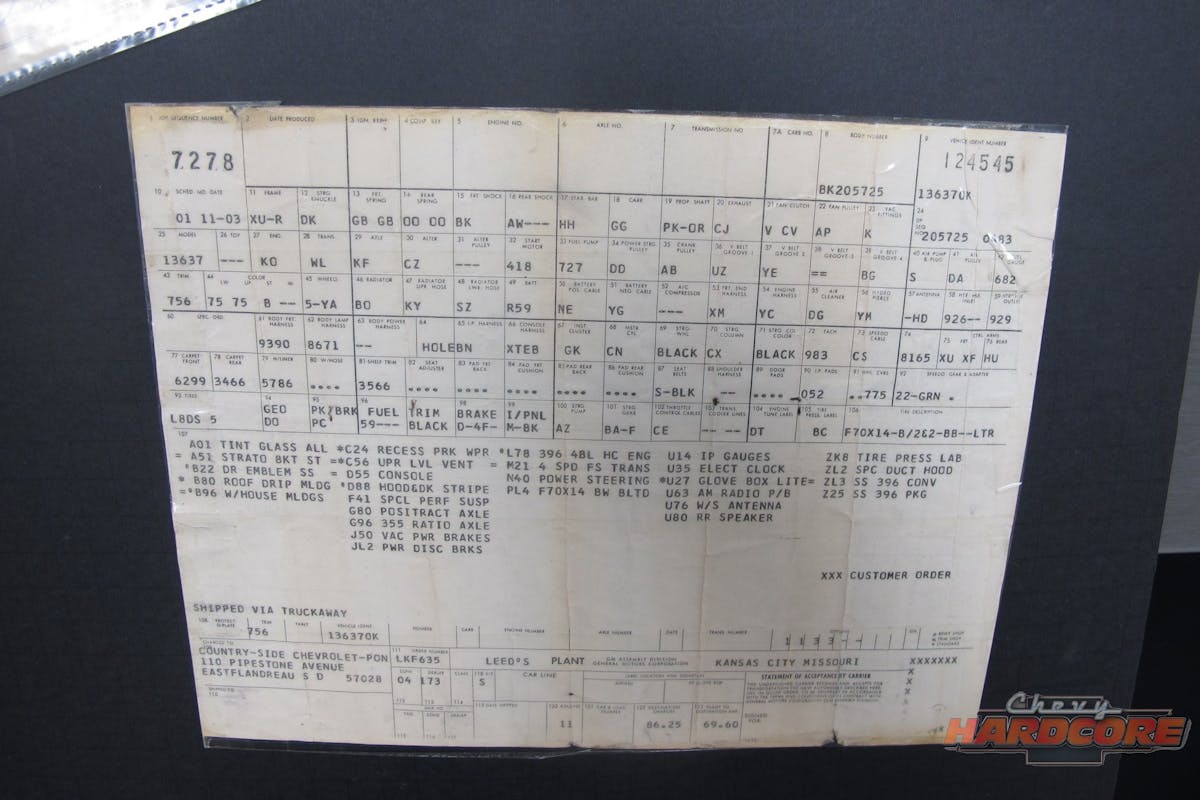 1 JOB SEQUENCE NUMBER 2 DATE PRODUCED 5 ENGINE NO. 6 AXLE NO. 7 TRANSMISSION NO 7A CARB NO. 8 BODY NUMBER 9 VEHICLE IDENT NUMBER
7278 BK205725 124545
136370K
10 SCHED MO. DATE 11 FRAME 12 STRG. KNUCKLE 13 FRT. SPRING 14 REAR SPRING 15 FRT SHOCK 16 REAR SHOCK 17 STAB. BAR 18 CARR 19 PROP. SHAFT 20 EXHAUST 21 FAN CLUTCH 22 FAN PULLEY 23 VAC FITTINGS 24
01 11-03 XU-R DK GB GB OO OO BK AW--- HH GG PK-OR CJ V CV AP K 205725 0483
25 MODEL 26 TOP 27 ENG. 28 TRANS 29 AXLE 30 ALTER 31 ALTER PULLEY 32 START MOTOR 33 FUEL PUMP 34 POWER STRG PULLEY 35 CRANK PULLEY 36 V BELT GROOVE 1 37 V BELT GROOVE 2 38 V BELT GROOVE 3 39 V BELT GROOVE 4 40 AIR PUMP & PLUG
13637 --- KO WL KF CZ --- 418 727 DD AB UZ YE == BG S DA 682
43 TRIM 44 COLOR 45 WHEELS 46 RADIATOR 47 RADIATOR UPR. HOSE 48 RADIATOR LWR. HOSE 49 BATT 50 BATTERY POS. CABLE 51 BATTERY NEG. CABLE 52 A/C COMPRESSOR 53 FRT. END HARNESS 54 ENGINE HARNESS 55 AIR CLEANER 57 ANTENNA
756 75 75 B -- 5-YA BO KY SZ R59 NE YG --- XM YC DG YM -HD 926-- 929
60 SPEC. ORD. 61 BODY FRT. HARNESS 62 BODY LAMP HARNESS 63 BODY POWER HARNESS 64 65 I.P. HARNESS 66 CONSOLE HARNESS 67 INST. CLUSTER 68 MSTR CYL 69 STRG. WHL 70 STRG. COLUMN 71 STRG. COL COLOR 72 TACH 73 SPEEDO CABLE 74
9390 8671 -- HOLE BN XTEB GK CN BLACK CX BLACK 983 CS 8165 XU XF HU
77 CARPET FRONT 78 CARPET REAR 79 H/LINER 80 W/HOSE 81 SHELF TRIM 82 SEAT ADJUSTER 83 PAD FRT BACK 84 PAD FRT CUSHION 85 PAD REAR BACK 86 PAD REAR CUSHION 87 SEAT BELTS 88 SHOULDER HARNESS 89 DOOR PADS 90 I.P. PADS 91 WHL CVRS. 92 SPEEDO GEAR & ADAPTER
6299 3466 5786 **** 3566 **** **** **** **** **** S-BLK -- **** 052 **775 22-GRN *
93 TIRES 94 95 96 98 99 100 STRG PUMP 101 STRG. GEAR 102 THROTTLE CONTROL CABLES 103 TRANS. COOLER LINES 104 ENGINE TUNE LABEL 105 TIRE PRESS LABEL 106 TIRE DESCRIPTION
GEO PK/BRK FUEL TRIM BRAKE I/PNL
L8DS 5 DO PC 59--- BLACK D-4F- M-BK AZ BA-F CE -- -- DT BC F70X14-B/2&2-BB--LTR
107
A01 TINT GLASS ALL *C24 RECESS PRK WPR *L78 396 4BL HC ENG U14 IP GAUGES ZK8 TIRE PRESS LAB
= A51 STRATO BKT ST =*C56 UPR LVL VENT = M21 4 SPD FS TRANS U35 ELECT CLOCK ZL2 SPC DUCT HOOD
*B22 DR EMBLEM SS = D55 CONSOLE N40 POWER STEERING *U27 GLOVE BOX LITE= ZL3 SS 396 CONV
* B80 ROOF DRIP MLDG *D88 HOOD&DK STRIPE PL4 F70X14 BW BLTD U63 AM RADIO P/B Z25 SS 396 PKG
=*B96 W/HOUSE MLDGS F41 SPCL PERF SUSP U76 W/S ANTENNA
G80 POSITRACT AXLE U80 RR SPEAKER
G96 355 RATIO AXLE
J50 VAC PWR BRAKES
JL2 PWR DISC BRKS
XXX CUSTOMER ORDER
SHIPPED VIA TRUCKAWAY
TRIM PAINT VEHICLE IDENT NUMBER CARR ENGINE NUMBER AXLE NUMBER DATE TRANS NUMBER
756 136370K
COUNTRY-SIDE CHEVROLET-PON LKF635 LEED'S PLANT GM ASSEMBLY DIVISION GENERAL MOTORS CORPORATION KANSAS CITY MISSOURI XXXXXXX
110 PIPESTONE AVENUE
EASTFLANDREAU S D 57028 04 173 S CAR LINE STATEMENT OF ACCEPTANCE BY CARRIER
11 86.25 69.60 SIGNED FOR:
Chevy
HARDCORE